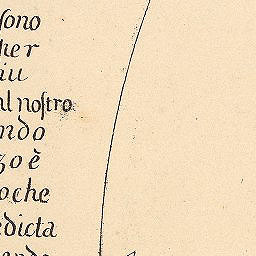 ſono
her
iu
al noſtro
ndo
zo è
oche
edicta